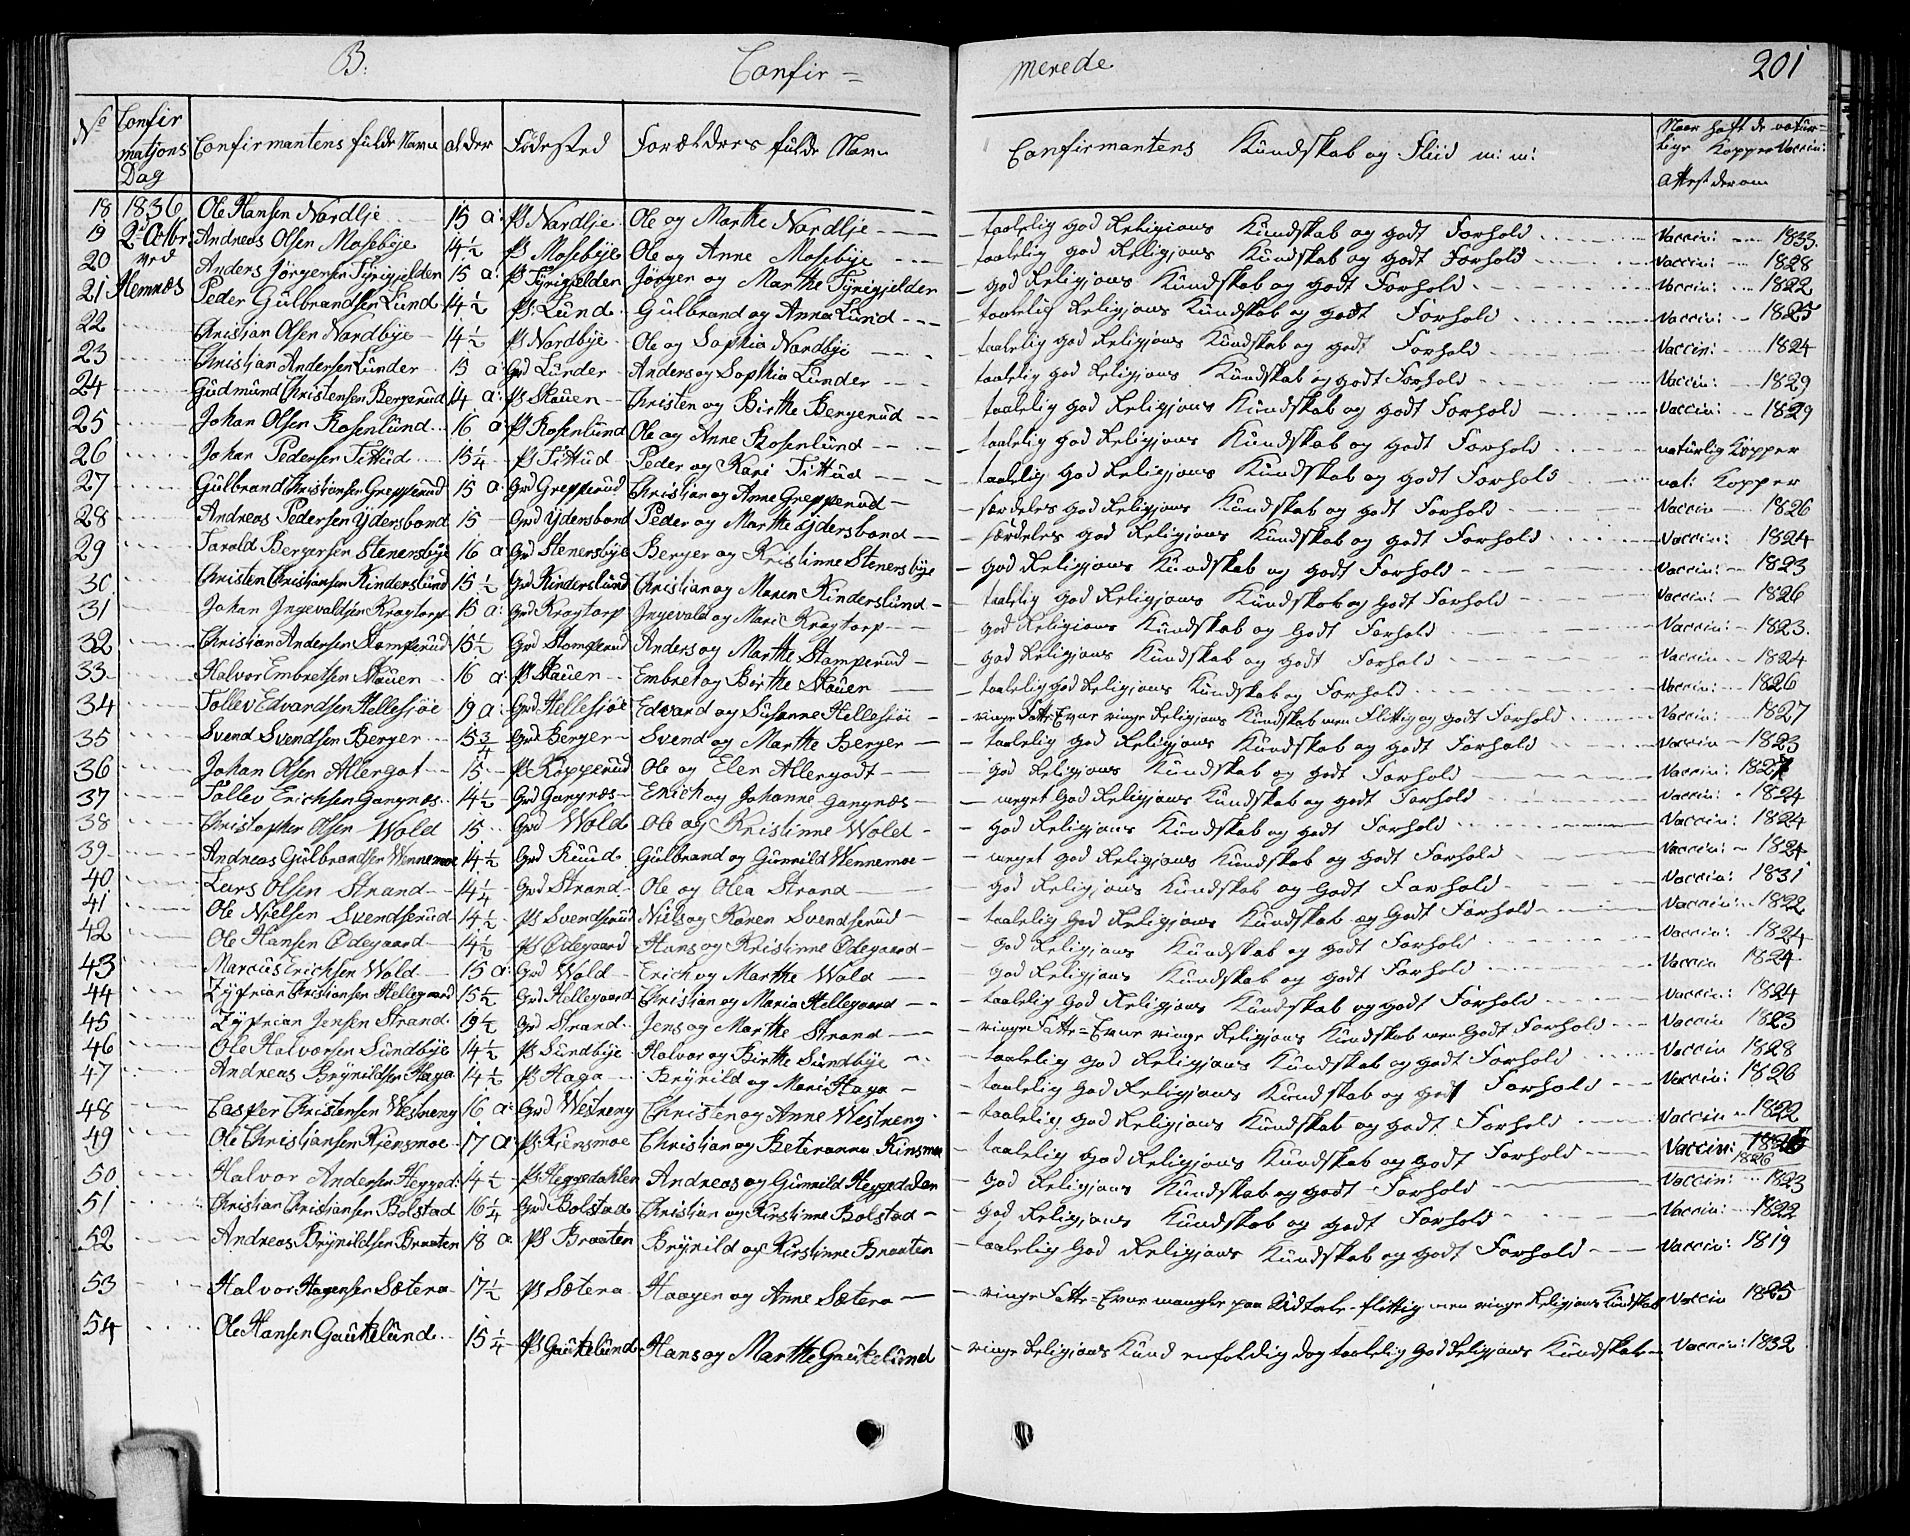 B. Confir = merede 201
No Confirmatjons Dag Confirmantens fulde Navn alder Fødested Forældres fulde Navn Confirmantens Kundskab og Fliid m: m: Naar haft de naturlige Kopper Vaccin: Attest derom
18 1836 Ole Hansen Nordlje 15 a: Ps Nordlje Ole og Marthe Nordlje taalelig god Religions Kundskab og godt Forhold Vaccin: 1833.
19 2d Octbr Andreas Olsen Mosebye 14 1/2 Ps Mosebye Ole og Anne Mosebye taalelig god Religjons Kundskab og godt Forhold Vaccin: 1828
20 ved Anders Jørgensen Tyrigjelden 15 a: Ps Tyrigjelden Jørgen og Marthe Tyrigjelden god Religjons Kundskab og godt Forhold Vaccin: 1822
21 Hemnæs Peder Gulbrandsen Lund 14 1/2 Ps: Lund Gulbrand og Anna Lund taalelig Religjons Kundskab og godt Forhold Vaccin: 1825
22 Christian Olsen Nordbye 14 1/2 Ps Nordbye Ole og Sophia Nordbye taalelig god Religjons Kundskab og godt Forhold Vaccin: 1824
23 Christjan Andersen Lunder 15 a: Grd Lunder Anders og Sophia Lunder taalelig god Religjons Kundskab og godt Forhold Vaccin: 1829
24 Gudmund Christensen Bergerud 14 a: Ps Skauen Christen og Birthe Bergerud taalelig god Religjons Kundskab og godt Forhold Vaccin: 1829
25 Johan Olsen Rosenlund 16 a: Ps Rosenlund Ole og Anne Rosenlund taalelig god Religjons Kundskab og godt Forhold naturlig Kopper
26 Johan Pedersen Tittud 15 1/4 Ps Tittud Peder og Kari Tittud taalelig God Religjons Kundskab og godt Forhold nat: Kopper
27 Gulbrand Christiansen Grepperud 15 a: Grd Grepperud Christian og Anne Grepperud særdeles god Religjons Kundskab og godt Forhold Vaccin 1826
28 Andreas Pedersen Ydersbond 15 Grd Ydersbond Peder og Marthe Ydersbond særdeles god Religjons Kundskab og godt Forhold Vaccin: 1824
29 Tarald Bergersen Stenersbye 16 a Grd Stenersbye Berger og Kristinne Stenersbye god Religjons Kundskab og godt Forhold Vaccin: 1823
30 Christen Christjansen Kinderslund 15 1/2 Grd Kinderslund Christian og Maren Kinderslund taalelig god Religjons Kundskab og godt Forhold Vaccin: 1826
31 Johan Ingevaldsen Kragtorp 15 a: Grd Kragtorp Ingevald og Mari Kragtorp god Religions Kundskab og godt Forhold Vaccin: 1823.
32 Christian Andersen Stomperud 15 1/2 Grd Stomperud Anders og Marthe Stomperud god Religjons Kundskab og godt Forhold Vaccin: 1824
33 Halvor Embretsen Skauen 16 a: Ps Skauen Embret og Birthe Skauen taalelig god Religjons Kundskab og godt Forhold Vaccin: 1826
34 Tollev Edvardsen Hellesjøe 19 a: Grd Hellesjøe Edvard og Susanne Hellesjøe ringe Fatte=Evne ringe Religjons Kundskab men Flittig og godt Forhold Vaccin: 1827
35 Svend Svendsen Berger 15 3/4 Grd Berger Svend og Marthe Berger taalelig god Religjons Kundskab og godt Forhold Vaccin 1823
36 Johan Olsen Allergot 15 Ps Kopperud Ole og Elen Allergodt god Religjons Kundskab og godt Forhold Vaccin: 1827
37 Tollev Erichsen Gangnæs 14 1/2 Grd Gangnæs Erich og Johanne Gangnæs meget god Religjons Kundskab og godt Forhold Vaccin: 1824
38 Christopher Olsen Wold 15 Grd Wold Ole og Kristinne Wold god Religjons Kundskab og godt Forhold Vaccin: 1824
39 Andreas Gulbrandsen Wennemoe 14 1/2 Grd Ruud Gulbrand og Gunnild Wennemoe meget god Religjons Kundskab og godt Forhold Vaccin: 1824
40 Lars Olsen Strand 14 1/4 Grd Strand Ole og Olea Strand god Religjons Kundskab og Godt Forhold Vaccin: 1831
41 Ole Nielsen Svendserud 14 1/2 Ps Svendserud Niels og Karen Svendserud taalelig God Religjons Kundskab og Godt Forhold Vaccin: 1822
42 Ole Hansen Ødegaard 14 1/2 Ps Ødegaard Hans og Kristinne Ødegaard god Religjons Kundskab og Godt Forhold Vaccin: 1824
43 Marcus Erichsen Wold 15 a: Grd Wold Erich og Marthe Wold god Religjons Kundskab og godt Forhold Vaccin 1824
44 Zyprian Christiansen Hellegaard 15 1/2 Grd Hellegaard Christian og Maria Hellegaard taalelig God Religjons Kundskab og godt Forhold Vaccin: 1824
45 Zyprian Jensen Strand 19 1/2 Grd Strand Jens og Marthe Strand ringe Fatte=Evne ringe Religjons Kundskab men Godt Forhold Vaccin 1823
46 Ole Halvorsen Sundbye 14 1/2 Ps Sundbye Halvor og Birthe Sundbye taalelig god Religjons Kundskab og godt Forhold Vaccin 1828
47 Andreas Brynildsen Haga 14 1/2 Ps Haga Brynild og Mari Haga taalelig God Religjons Kundskab og godt Forhold Vaccin: 1826
48 Casper Christensen Westreng 16 a: Grd Westreng Christen og Anne Westreng taalelig god Religjons Kundskab og godt Forhold Vaccin 1822
49 Ole Christjansen Kjensmoe 17 a: Ps Kjensmoe Christian og Beteranna Kinsmoe taalelig god Religjons Kundskab og godt Forhold Vaccin: 1826 1826
50 Halvor Andersen Hegged: 14 1/2 Ps Heggedahlen Andreas og Gunnild Heggedalen God Religjons Kundskab og godt Forhold Vaccin: 1823
51 Christian Christjansen Bolstad 16 1/4 Grd Bolstad Christian og Kirstinne Bolstad god Religjons Kundskab og godt Forhold Vaccin: 1822
52 Andreas Brynildsen Braaten 18 a Ps Braaten Brynild og Kirstinne Braaten taalelig God Religjons Kundskab og godt Forhold Vaccin: 1819
53 Halvor Hagensen Sætera 17 1/2 Ps Sætera Haagen og Anne Sætera ringe Fatte=Evne mangler paa Udtale flittig men ringe Religjons Kundskab Vaccin 1825
54 Ole Hansen Gaukelund 15 1/4 Ps Gaukelund Hans og Marthe Gaukelund ringe Religjons Kund enfoldig dog taalelig God Religjons Kundskab Vaccin: 1832